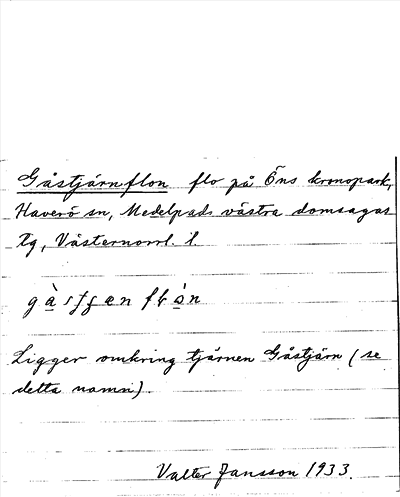 Gåstjärnflon flo på Öns kronopark,
Haverö sn, Medelpads västra domsagas
tg, Västernorrl. l.
Ligger omkring tjärnen Gåstjärn (se
detta namn).
Valter Jansson 1933.